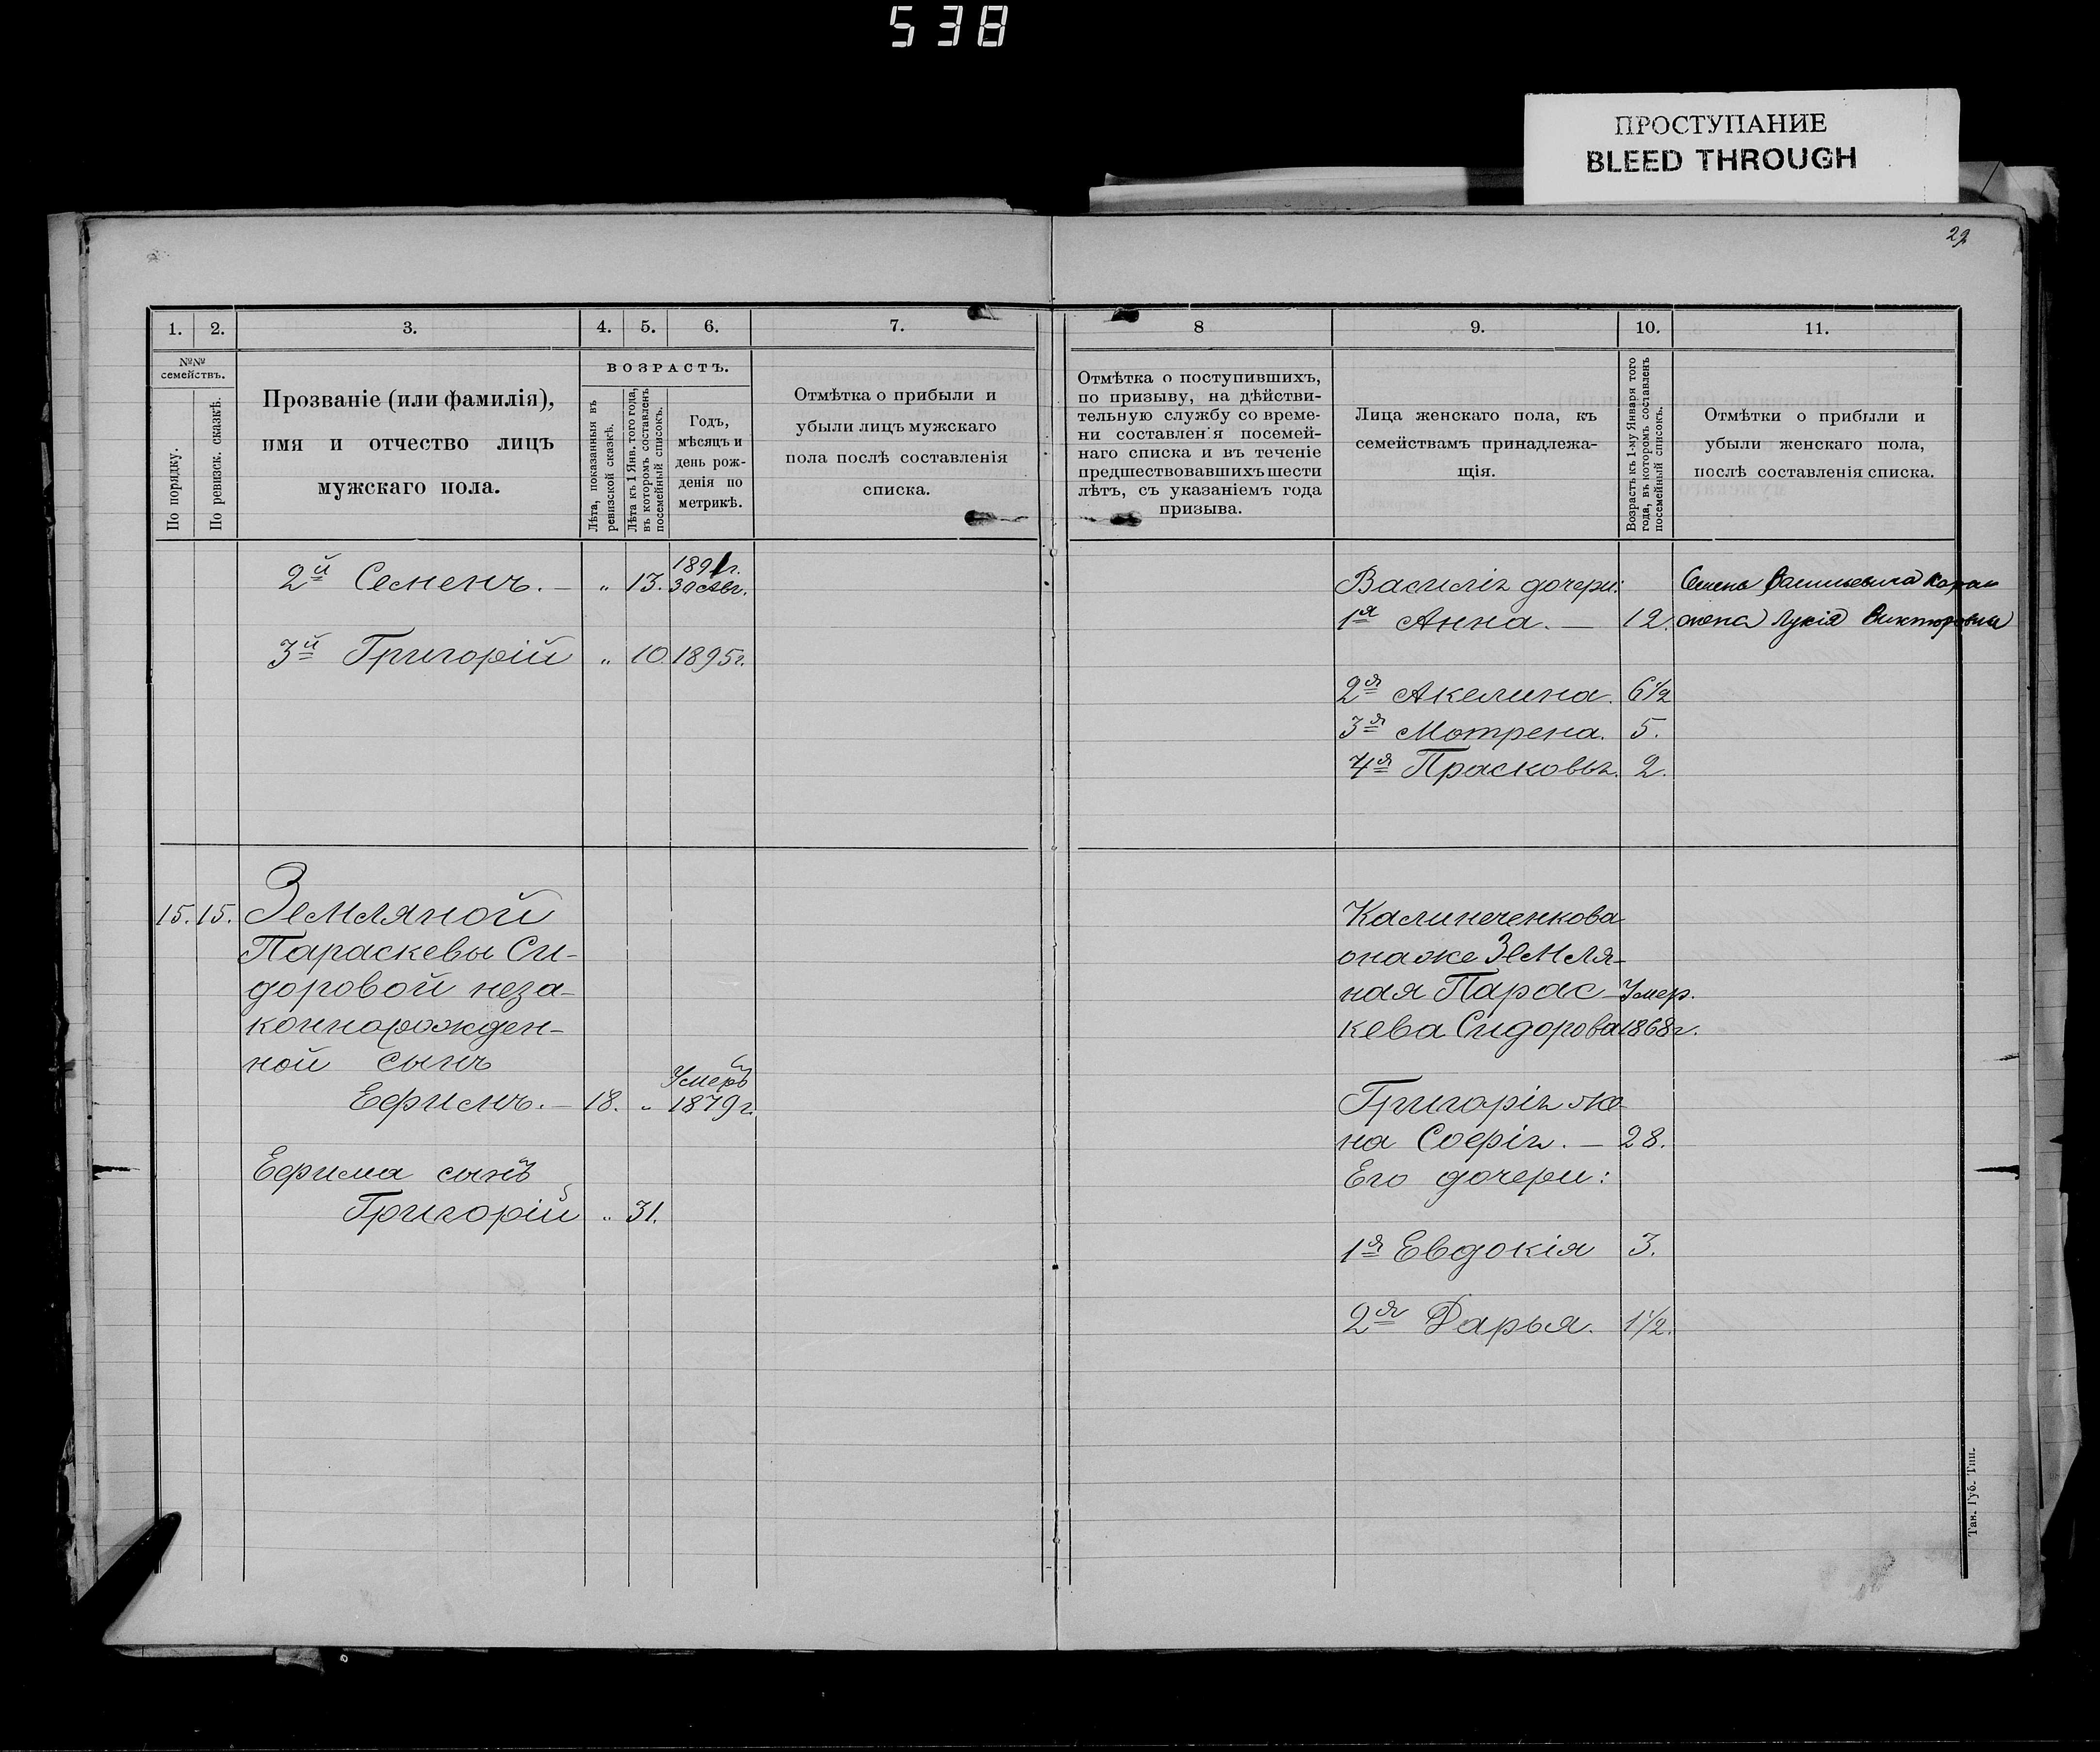 538
ПРОСТУПАНИЕ
BLEED THROUGH
22
1.
2.
3.
4.
5.
6.
7.
№№
семействъ.
По порядку.
По ревизск. сказкѣ.
Прозваніе (или фамилія),
имя и отчество лицъ
мужскаго пола.
ВОЗРАСТЪ.
Лѣта, показанныя въ
ревизской сказкѣ.
Лѣта къ 1 Янв. того года,
въ которомъ составленъ
посемейный списокъ.
Годъ,
мѣсяцъ и
день рож-
денія по
метрикѣ.
Отмѣтка о прибыли и
убыли лицъ мужскаго
пола послѣ составленія
списка.
2й Семенъ. — „ 13. 1891г.
30 Авг.
3й Григорій „ 10 1895г.
15. 15. Земляной
Параскевы Си-
доровой неза-
коннорожден-
ной сынъ
Ефимъ. — 18. „ Умеръ
1879г.
Ефима сынъ
Григорій „ 31.
8
9.
10.
11.
Отмѣтка о поступившихъ,
по призыву, на дѣйстви-
тельную службу со време-
ни составленія посемей-
наго списка и въ теченіе
предшествовавшихъ шести
лѣтъ, съ указаніемъ года
призыва.
Лица женскаго пола, къ
семействамъ принадлежа-
щія.
Возрастъ къ 1-му Января того
года, въ которомъ составленъ
посемейный списокъ.
Отмѣтки о прибыли и
убыли женскаго пола,
послѣ составленія списка.
Василія дочери: Семена Васильевича
1я Анна. — 12. жена Лукія Викторовна
2я Акелина. 6½
3я Мотрена. 5.
4я Прасковья. 2.
Калинеченкова
она же Земля-
ная Парас- Умер.
кева Сидорова 1868г.
Григорія же-
на Софія. — 28.
Его дочери:
1я Евдокія 3.
2я Дарья. 1½.
Тав. Губ. Тип.